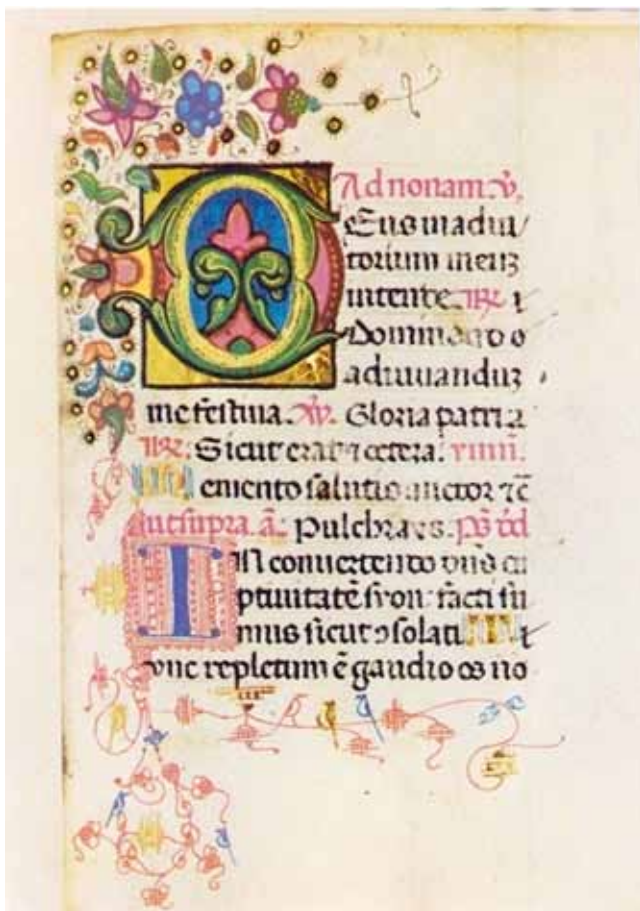 Ad nonam. v̄.
Deus in adiu
torium meuꝫ
intende. R̄.
Domine ad
adiuuanduꝫ
me festina. v̄. Gloria patri
R̄. Sicut erat ⁊ cetera. ymn̄.
Memento salutis auctor ⁊c̄
ut supra. a. Pulchra es. p̄s
In conuertendo dn̄s ca
ptiuitatē syon: facti su
mus sicut ꝯsolati. T
unc repletum ē gaudio os no